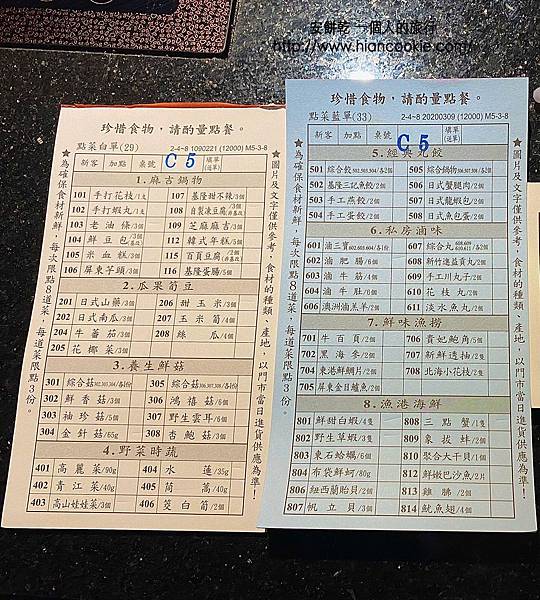 安餅乾 一個人的旅行
http://www.hiancookie.com/
珍惜食物，請酌量點餐。
點菜白單(29) 2-4~8 1090221 (12000) M5-3-8
新客 加點 桌號 C5 填單(送單)
★為確保食材新鮮，每次限點8道菜，每道菜限點3份。
1.麻吉鍋物
101 手打花枝/1支 107 基隆甜不辣/3個
102 手打蝦丸/1支 108 自製凍豆腐/3個
103 老油條/3個 109 芝麻麻吉/3個
104 鮮豆包/3個 112 韓式年糕/5個
105 米血糕/3個 115 百頁豆腐/2個
106 屏東芋頭/3個 116 基隆蛋腸/5個
2.瓜果筍豆
201 日式山藥/3個 206 甜玉米/3個
202 日式南瓜/3個 207 玉米筍/4個
204 牛蕃茄/3個 208 絲瓜/4個
205 花椰菜/3個
3.養生鮮菇
301 綜合菇302,303,304/各1份 305 綜合菇306,307,308/各1份
302 鮮香菇/3個 306 鴻禧菇/6個
303 袖珍菇/5個 307 野生雲耳/6個
304 金針菇/65g 308 杏鮑菇/3個
4.野菜時蔬
401 高麗菜/90g 404 水蓮/35g
402 青江菜/40g 405 茼蒿/40g
403 高山娃娃菜/3個 406 茭白筍/2個
★圖片及文字僅供參考，食材的種類、產地，以門市當日進貨供應為準！
珍惜食物，請酌量點餐。
點菜藍單(33) 2-4~8 20200309 (12000) M5-3-8
新客 加點 桌號 C5 填單(送單)
★為確保食材新鮮，每次限點8道菜，每道菜限點3份。
5.經典丸餃
501 綜合餃502,503,504/各2個 505 綜合鍋物506,507,508/各2個
502 基隆三記魚餃/2個 506 日式蟹腿肉/2個
503 手工燕餃/2個 507 日式龍蝦包/2個
504 手工蛋餃/2個 508 日式魚包蛋/2個
6.私房滷味
601 滷三寶602,603,604/各1個 607 綜合丸608,609 610,611/各2個
602 滷肥腸/6個 608 新竹進益貢丸/2個
603 滷牛筋/4個 609 手工川丸子/2個
604 滷牛肚/6個 610 花枝丸/2個
606 澳洲滷羔羊/2個 611 淡水魚丸/2個
7.鮮味漁撈
701 牛百頁/2個 706 貴妃鮑角/5個
702 黑海參/2個 707 新鮮透抽/2隻
704 東港鮮鯛片/2個 708 北海小花枝/2隻
705 屏東金目鱸魚/2個
8.漁港海鮮
801 鮮甜白蝦/4隻 808 三點蟹/1隻
802 野生草蝦/3隻 809 象拔蚌/2個
803 東石蛤蠣/6個 810 聚合大干貝/1個
804 布袋鮮蚵/80g 812 鮮嫩巴沙魚/2片
806 紐西蘭貽貝/2個 813 雞腿/2個
807 帆立貝/3個 814 魷魚翅/4個
★圖片及文字僅供參考，食材的種類、產地，以門市當日進貨供應為準！